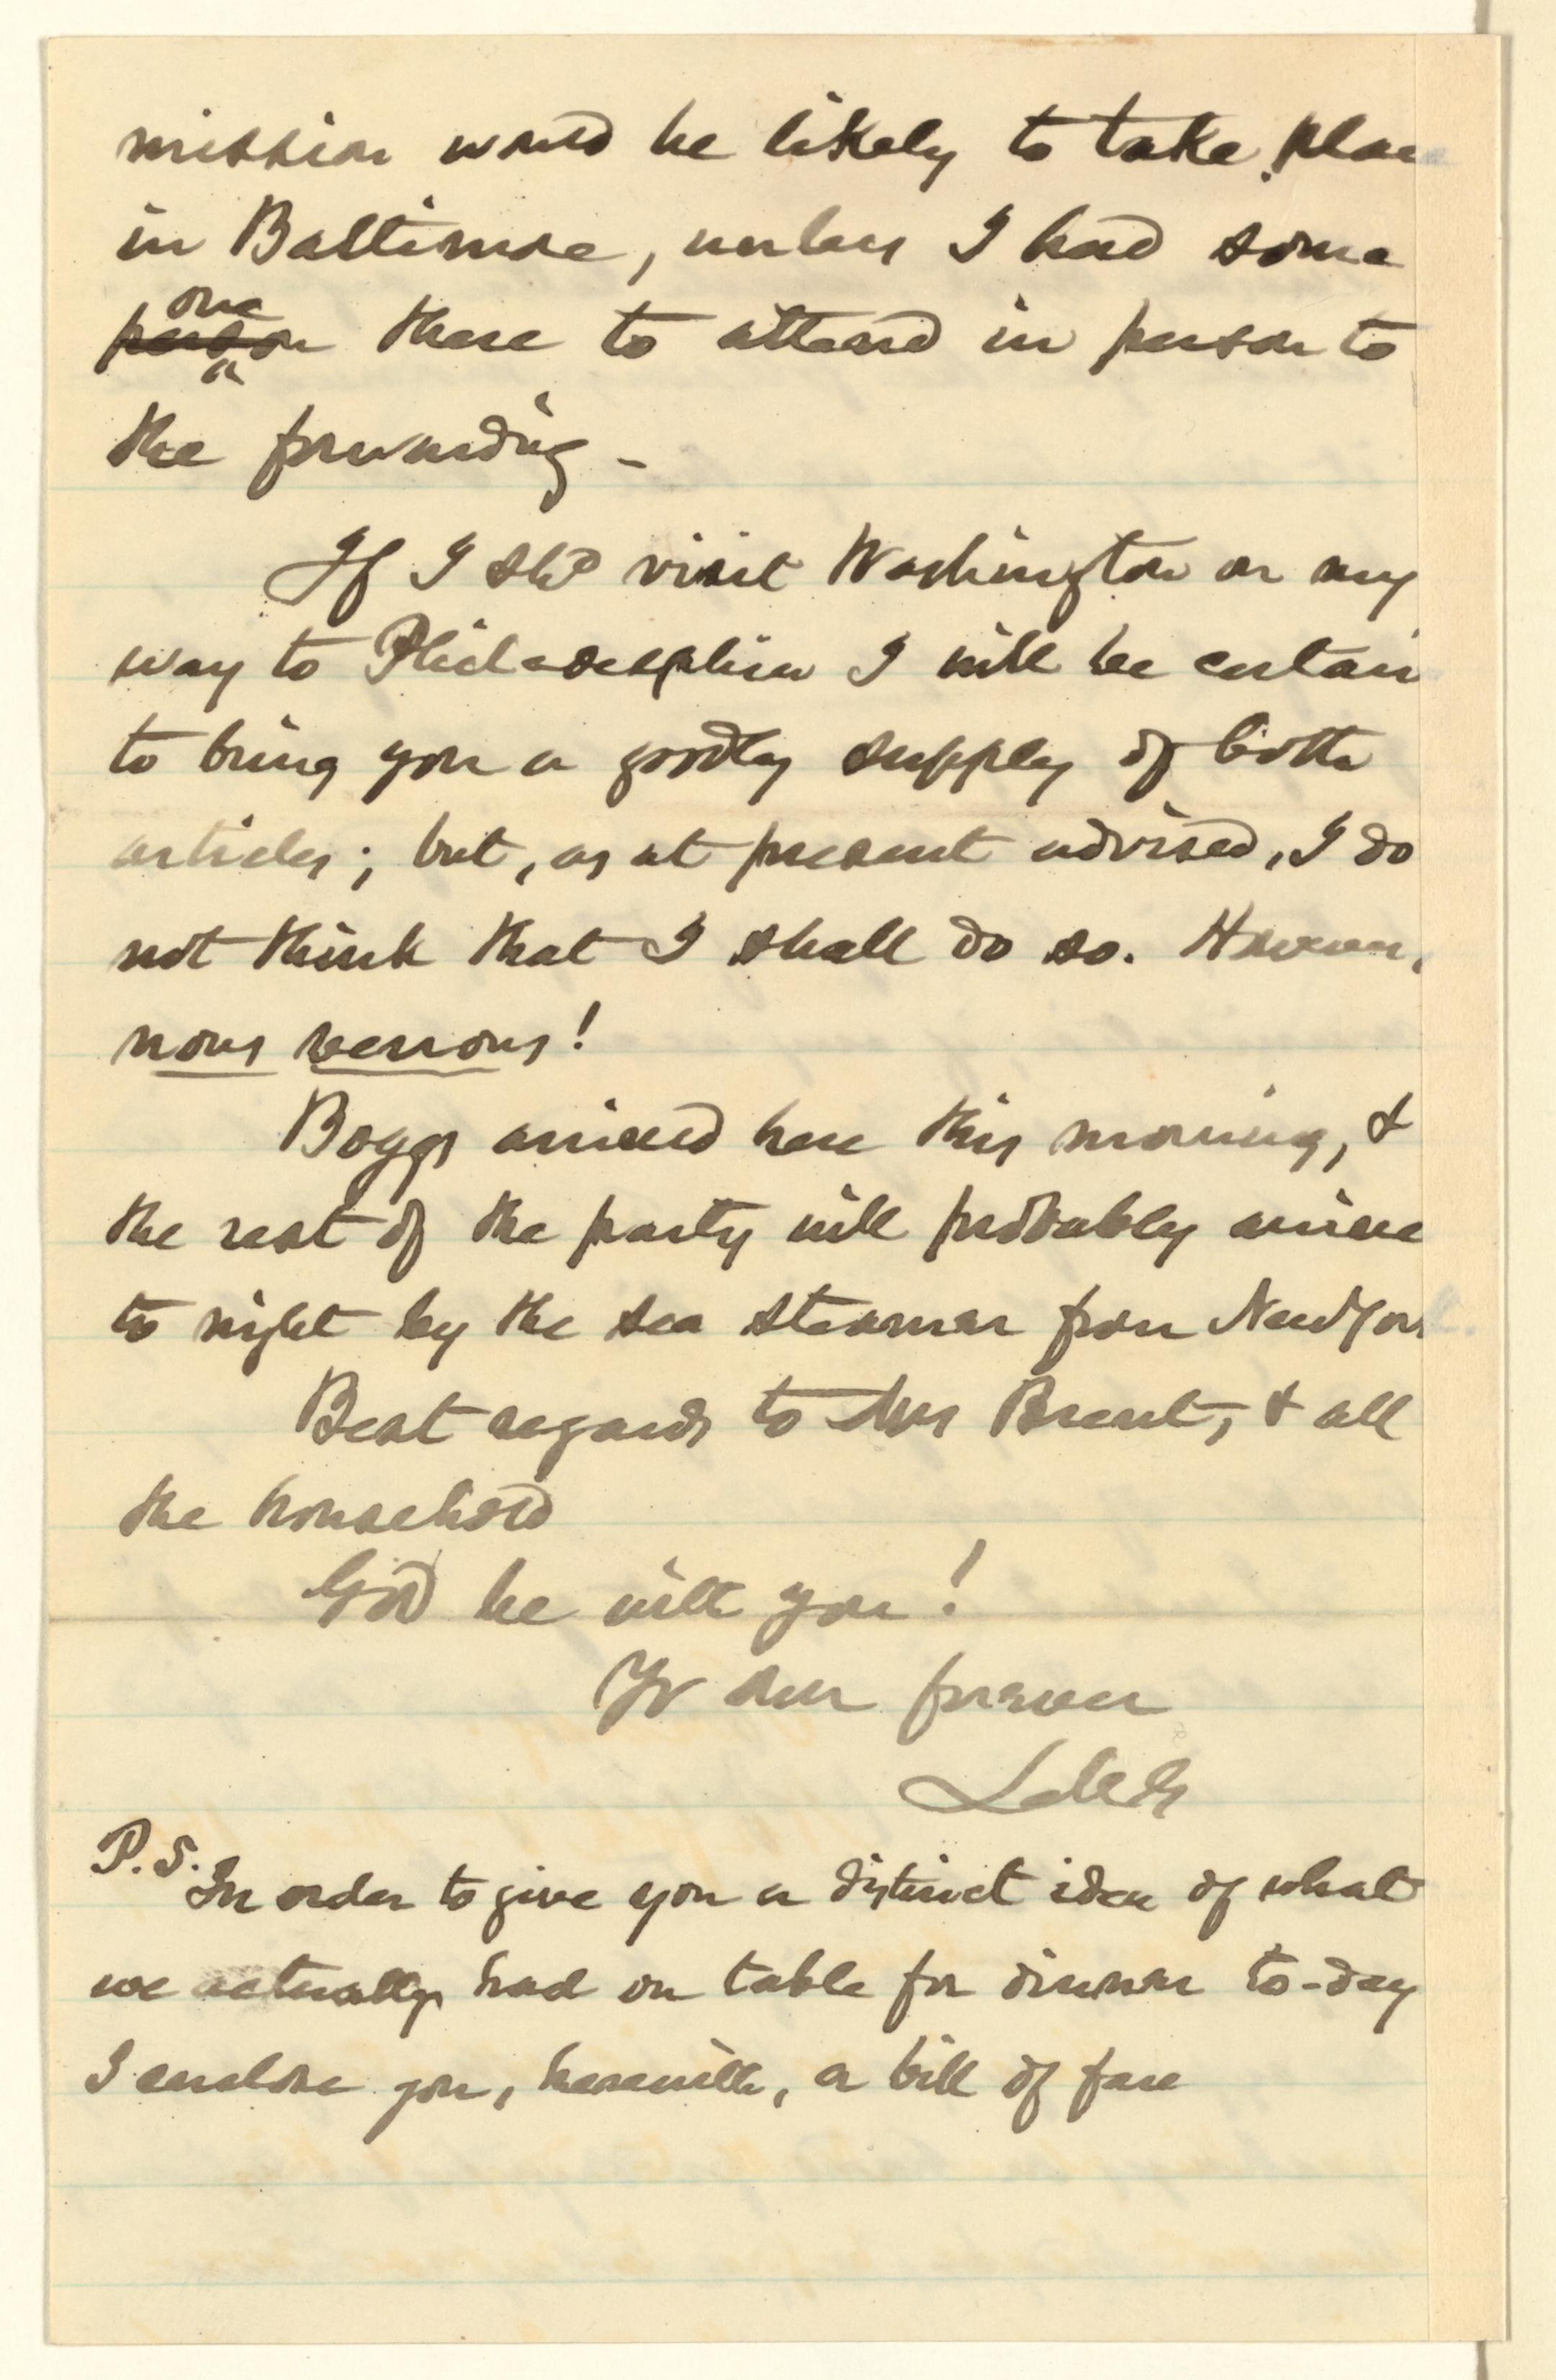 mission would be likely to take place
in Baltimore, unless I had some
person one there to attend in person to
the forwarding -
If I shd visit Washington on my
way to Philadelphia I will be certain
to bring you a goodly supply of both
articles; but, as at present advised, I do
not think that I shall do so. However,
nous verrons!
Boggs arrived here this morning, &
the rest of the party will probably arrive
to night by the sea steamer from New York.
Best regards to Mrs Brent, & all
the household
God be with you!
Yr own forever
P.S. In order to give you a distinct idea of what
we actually had on table for dinner to-day
I enclose you, herewith, a bill of fare